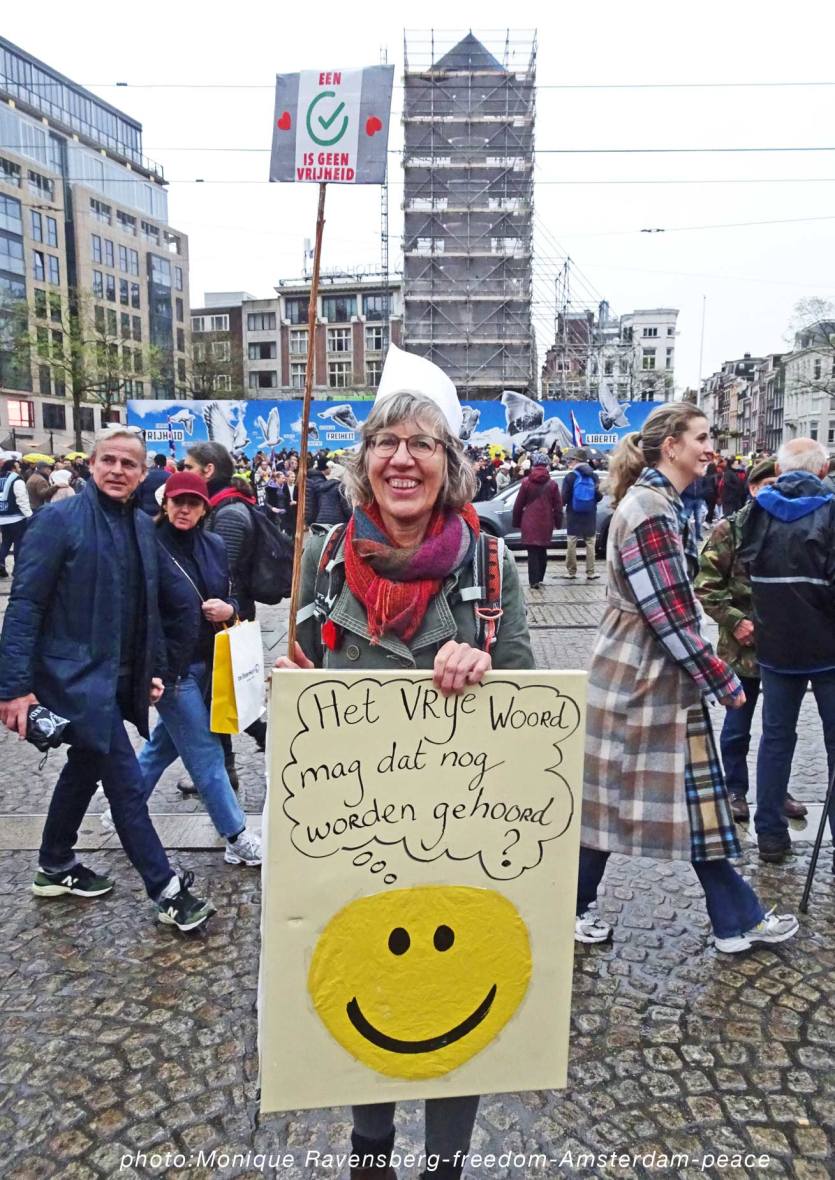 EEN
IS GEEN
VRIJHEID
RIJHEID
FREIHEIT
LIBERTE
Het VRije Woord
mag dat nog
worden gehoord
?
photo:Monique Ravensberg-freedom-Amsterdam-peace